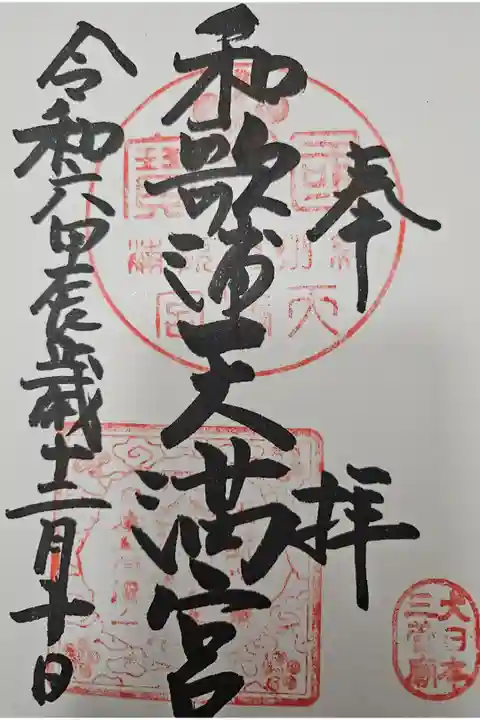 奉拝
和歌浦天満宮
令和六甲辰歳十二月十日
大日本
三菅廟